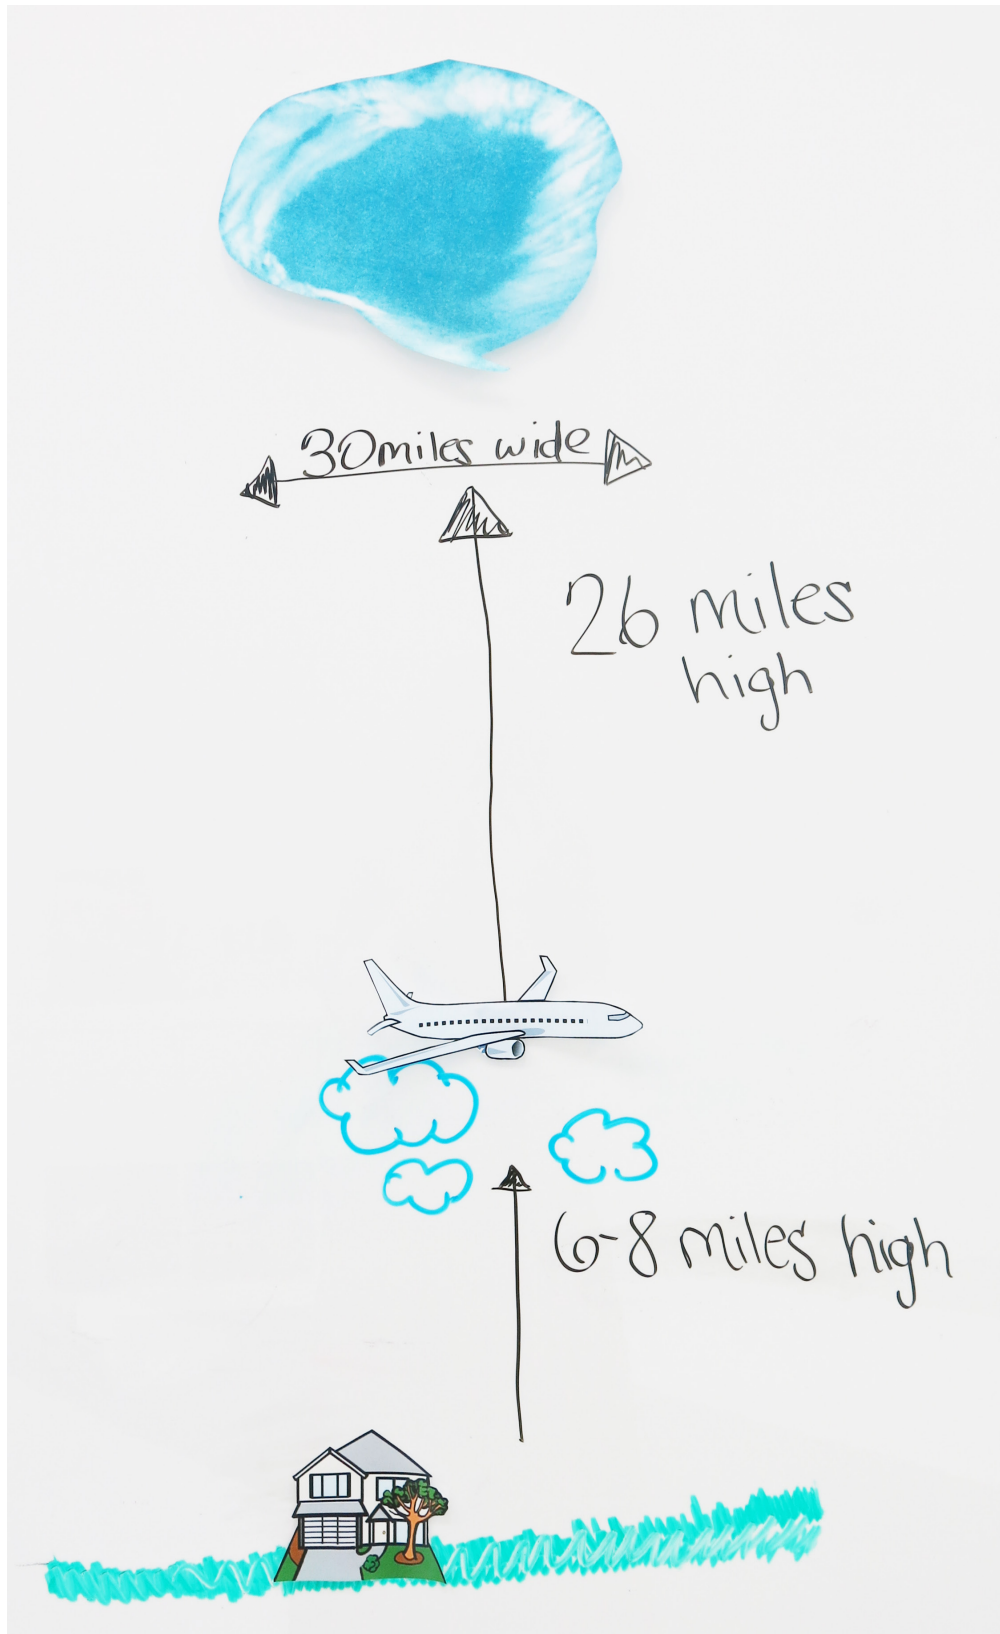 30miles wide
26 miles
high
6-8 miles high